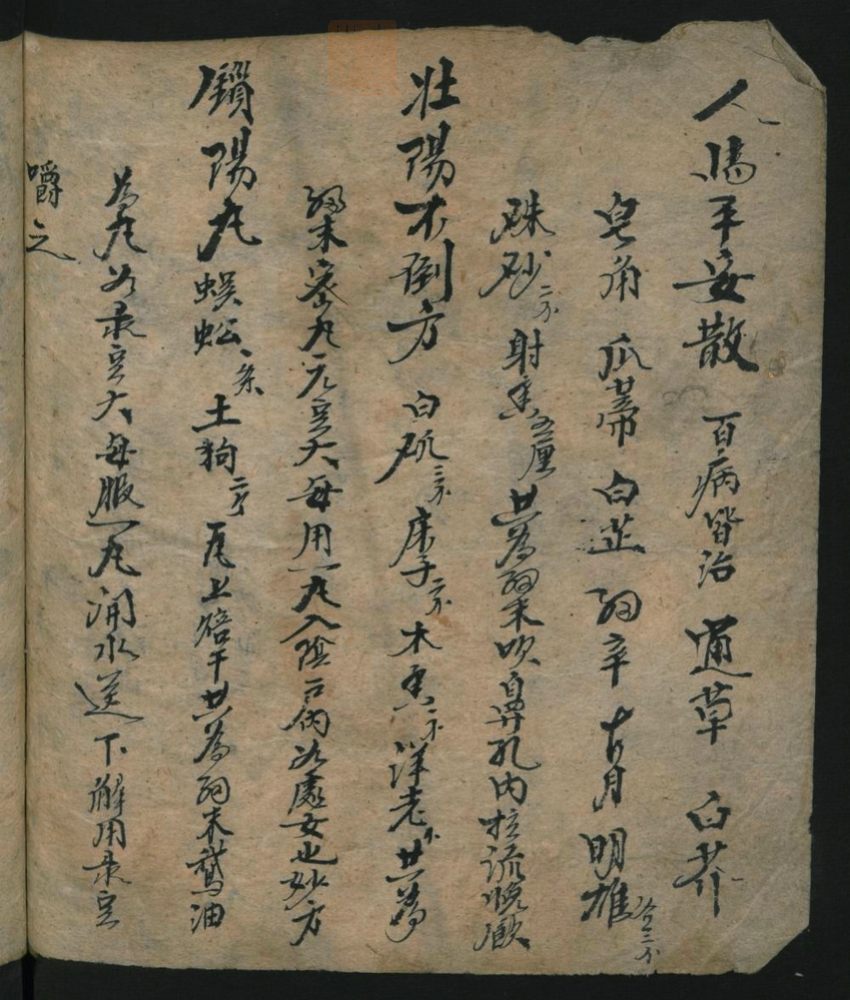 人馬平安散 百病皆治 通草 白芥
皂角 瓜蒂 白芷 细辛 明雄 各三分
硃砂二分 射香五厘 共為细末吹鼻孔內
壯陽不倒方 白矾三分 床子二分 木香二分 洋老 共為
细末密丸元豆大每用一丸入陰户内如處女也妙方
鎖陽丸 蜈蚣一条 土狗二个 瓦上焙干共為细末鵝油
為丸如彔豆大每服一丸涌水送下觧用彔豆
嚼之